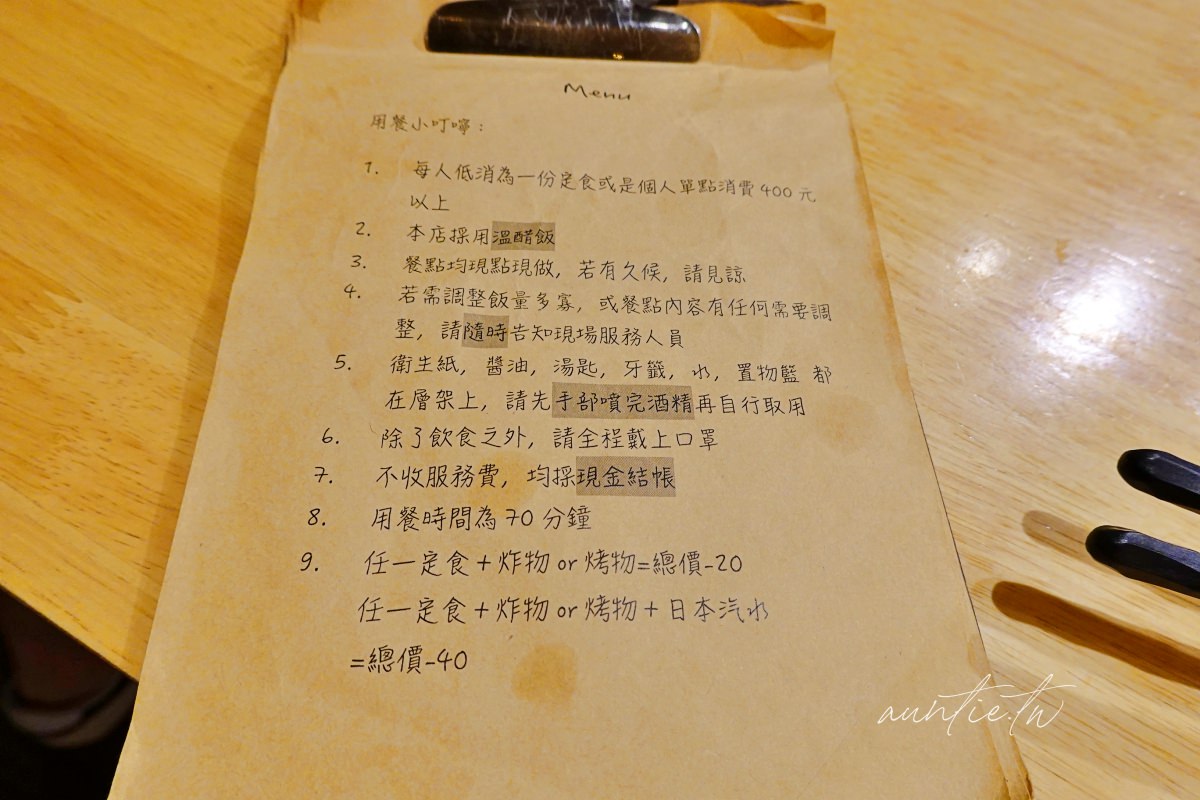 Menu
用餐小叮嚀：
1. 每人低消為一份定食或是個人單點消費400元
以上
2. 本店採用溫醋飯
3. 餐點均現點現做，若有久候，請見諒
4. 若需調整飯量多寡，或餐點內容有任何需要調
整，請隨時告知現場服務人員
5. 衛生紙，醬油，湯匙，牙籤，水，置物籃 都
在層架上，請先手部噴完酒精再自行取用
6. 除了飲食之外，請全程戴上口罩
7. 不收服務費，均採現金結帳
8. 用餐時間為70分鐘
9. 任一定食+炸物or烤物=總價-20
任一定食+炸物or烤物+日本汽水
=總價-40
auntie.tw